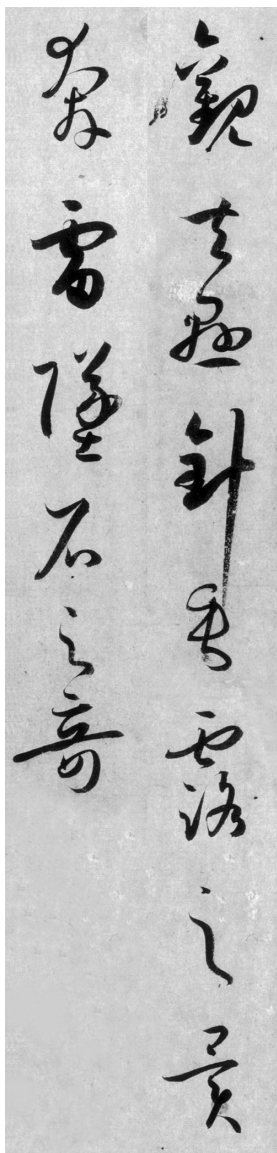 觀夫懸針垂露之異
奔雷墜石之奇